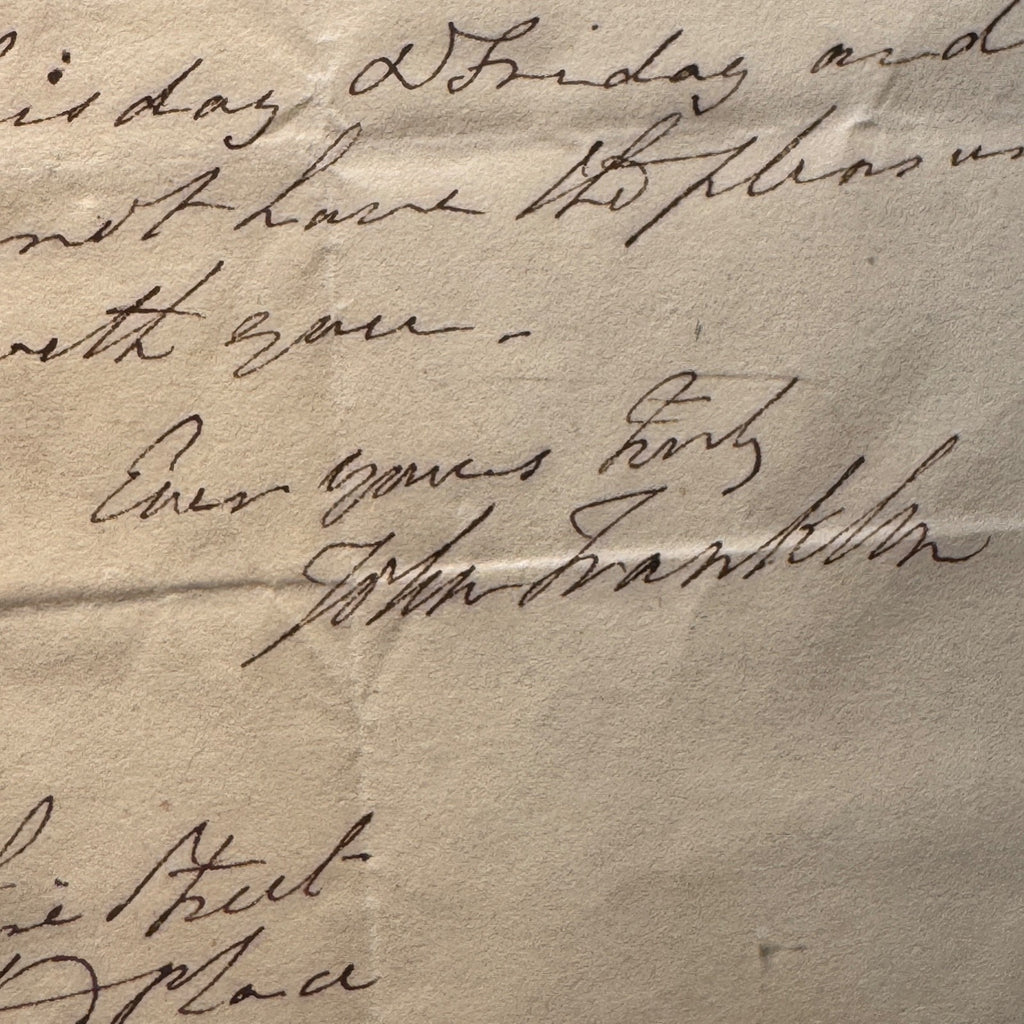 is day & Friday and
not have the pleasu
with you -
Ever yours truly
John Franklin
Street
place